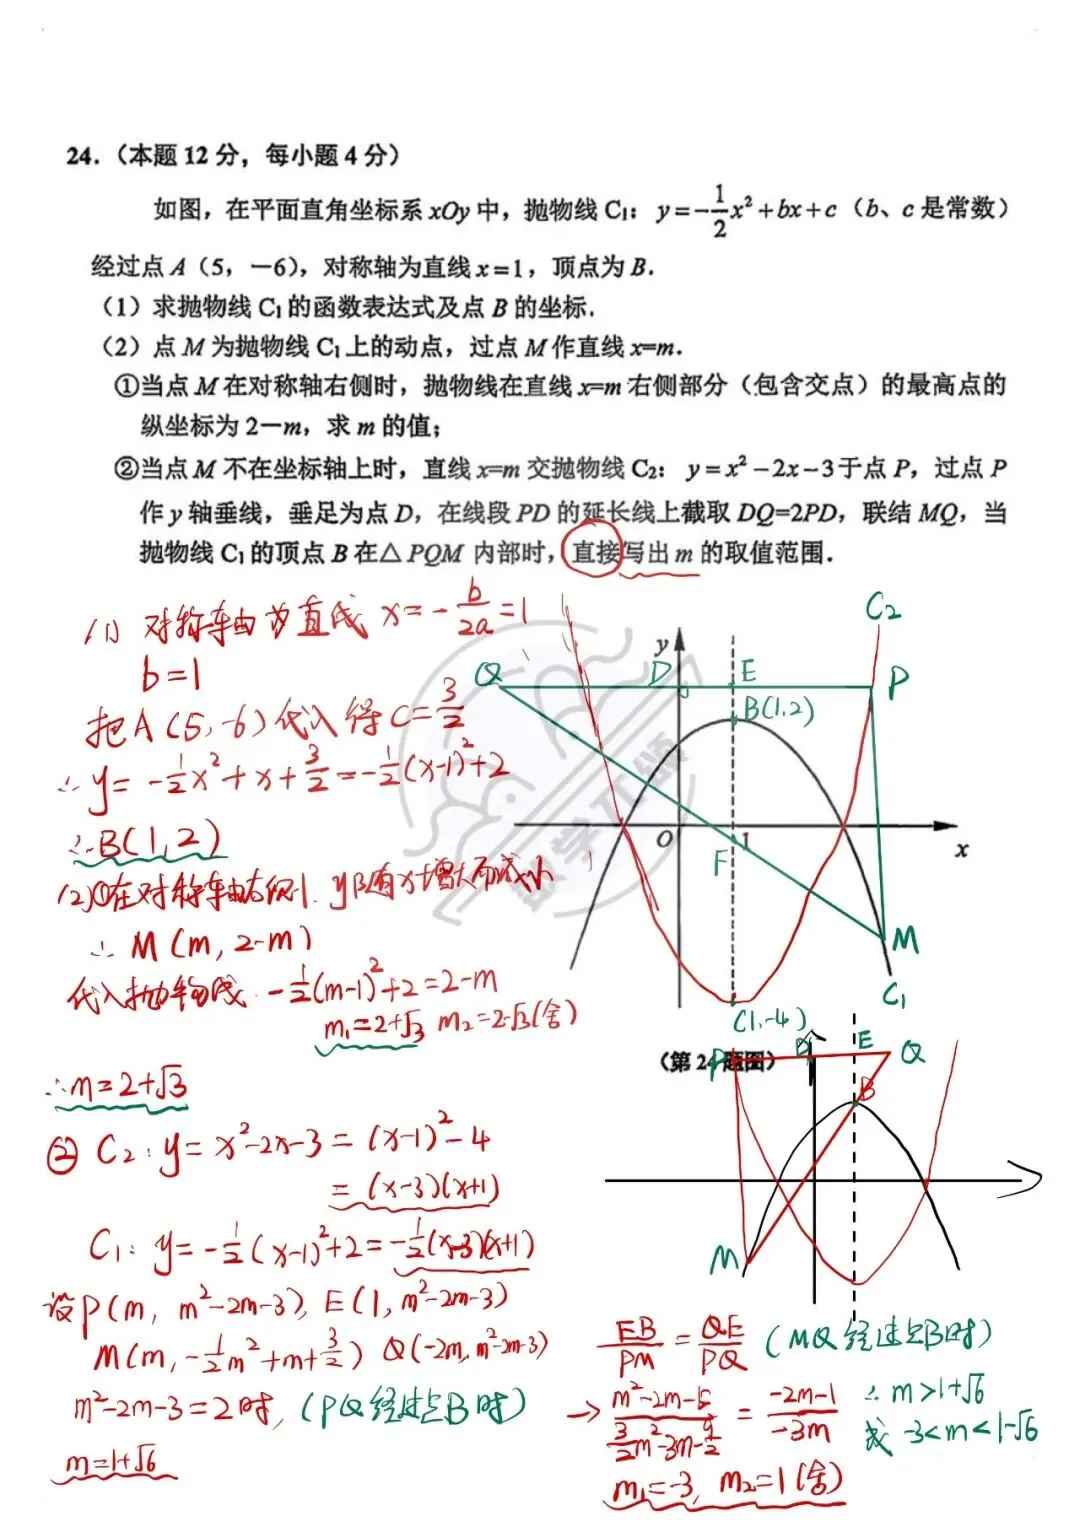 24.（本题 12 分，每小题 4 分）
如图，在平面直角坐标系 xOy 中，抛物线 C₁：y=-1/2x²+bx+c（b、c 是常数）
经过点 A（5，－6），对称轴为直线 x=1，顶点为 B.
（1）求抛物线 C₁ 的函数表达式及点 B 的坐标.
（2）点 M 为抛物线 C₁ 上的动点，过点 M 作直线 x=m.
①当点 M 在对称轴右侧时，抛物线在直线 x=m 右侧部分（包含交点）的最高点的
纵坐标为 2－m，求 m 的值；
②当点 M 不在坐标轴上时，直线 x=m 交抛物线 C₂：y=x²-2x-3 于点 P，过点 P
作 y 轴垂线，垂足为点 D，在线段 PD 的延长线上截取 DQ=2PD，联结 MQ，当
抛物线 C₁ 的顶点 B 在△PQM 内部时，直接写出 m 的取值范围.
(1) 对称轴为直线 x=-b/2a=1
b=1
把A(5,-6)代入得 c=3/2
∴ y=-1/2x²+x+3/2=-1/2(x-1)²+2
∴B(1,2)
(2)①在对称轴右侧, y随x增大而减小
∴ M(m, 2-m)
代入抛物线 -1/2(m-1)²+2=2-m
m₁=2+√3 m₂=2-√3(舍)
∴m=2+√3
② C₂: y=x²-2x-3=(x-1)²-4
=(x-3)(x+1)
C₁: y=-1/2(x-1)²+2=-1/2(x-3)(x+1)
设P(m, m²-2m-3), E(1, m²-2m-3)
M(m, -1/2m²+m+3/2) Q(-2m, m²-2m-3)
m²-2m-3=2时, (PQ经过点B时)
m=1+√6
C₂
y
Q
D
E
P
B(1,2)
O
1
F
x
M
C₁
(1,-4)
（第 24 题图）
P
D
E
Q
B
M
EB/PM=QE/PQ (MQ经过点B时)
→ (m²-2m-5)/(3/2m²-3m-9/2)=(-2m-1)/(-3m)
∴ m>1+√6
或 -3<m<1-√6
m₁=-3, m₂=1(舍)